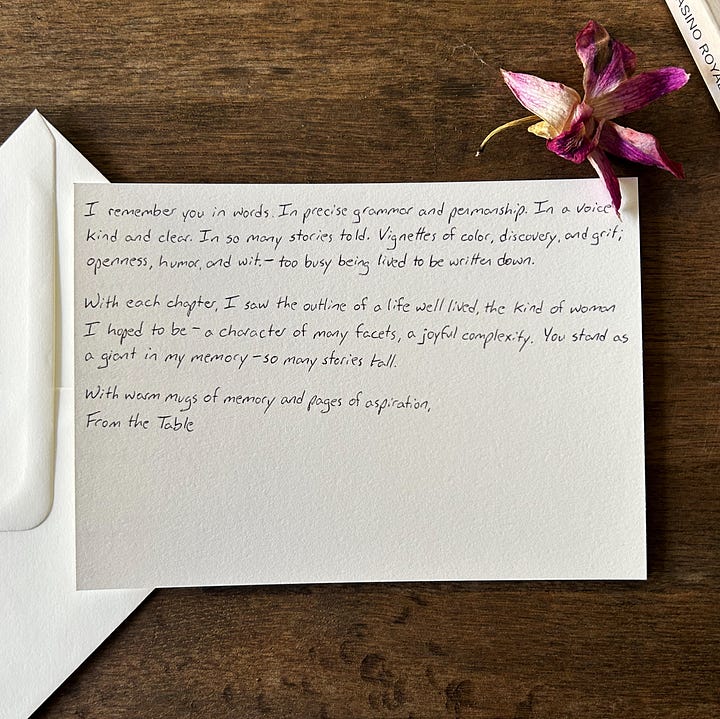 CASINO ROYALE
I remember you in words. In precise grammar and penmanship. In a voice
kind and clear. In so many stories told. Vignettes of color, discovery, and grit;
openness, humor, and wit. – too busy being lived to be written down.
With each chapter, I saw the outline of a life well lived, the kind of woman
I hoped to be – a character of many facets, a joyful complexity. You stand as
a giant in my memory – so many stories tall.
With warm mugs of memory and pages of aspiration,
From the Table